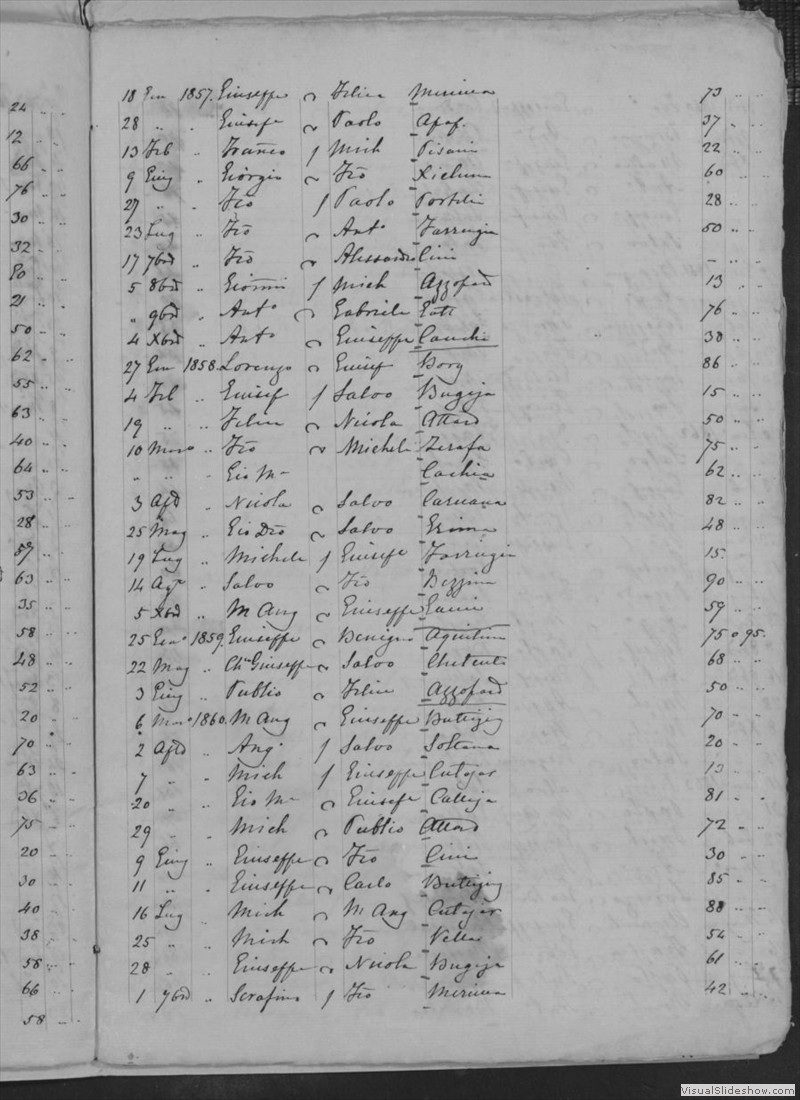 24 .. ..
12 .. ..
66 .. ..
76 .. ..
30 .. ..
32 .. ..
80 .. ..
21 .. ..
50 .. ..
62 .. ..
55 .. ..
63 .. ..
40 .. ..
64 .. ..
53 .. ..
28 .. ..
63 .. ..
35 .. ..
58 .. ..
48 .. ..
52 .. ..
20 .. ..
70 .. ..
63 .. ..
36 .. ..
75 .. ..
20 .. ..
30 .. ..
40 .. ..
38 .. ..
58 .. ..
66 .. ..
58 .. ..
18 1857. Giuseppe Felice 73 .. ..
28 .. .. Giusepe Paolo 37 .. ..
13 Feb .. Franco Mich Pisani 22 .. ..
9 Giug .. Giorgio Fco Xicluna 60 .. ..
27 .. .. Fco Paolo Portelli 28 .. ..
23 Lug .. Fco Anto Farrugia 50 .. ..
17 7bre .. Fco Alessandro Cini
5 8bre .. Mich Azzopard 13 .. ..
.. 9bre .. Anto Gabriele 76 .. ..
4 Xbre .. Anto Giuseppe Cauchi 38 .. ..
27 1858. Lorenzo Giusep Borg 86 .. ..
4 Feb .. Giusep Salvo Bugeja 15 .. ..
19 .. .. Felice Nicola Attard 50 .. ..
10 Marzo .. Fco Michele Zerafa 75 .. ..
.. .. .. Gio M Cachia 62 .. ..
3 .. Nicola Salvo Caruana 82 .. ..
25 Mag .. Salvo 48 .. ..
19 Lug .. Michele Giusepe Farrugia 15 ..
14 Ago .. Salvo Fco Bezzina 90 .. ..
5 Xbre .. M Ang Giuseppe 59 .. ..
25 1859. Giuseppe Benigno 75 .. 95.
22 Mag .. Giuseppe Salvo Chetcuti 68 .. ..
3 Giug .. Publio Felice Azzopard 50 .. ..
6 Marzo 1860. M Ang Giuseppe Buttigieg 70 .. ..
2 .. Ang. Salvo Soltana 20 .. ..
7 .. .. Mich Giuseppe Cutajar 13 .. ..
20 .. .. Gio M Giusepe Calleja 81 .. ..
29 .. .. Mich Publio Attard 72 .. ..
9 Giug .. Giuseppe Fco Cini 30 .. ..
11 .. .. Giuseppe Carlo Buttigieg 85 .. ..
16 Lug .. Mich M Ang Cutajar 88 .. ..
25 .. .. Mich Fco Vella 54 .. ..
28 .. .. Giuseppe Nicola Bugeja 61 .. ..
1 7bre .. Serafino Fco 42 .. ..
VisualSlideshow.com